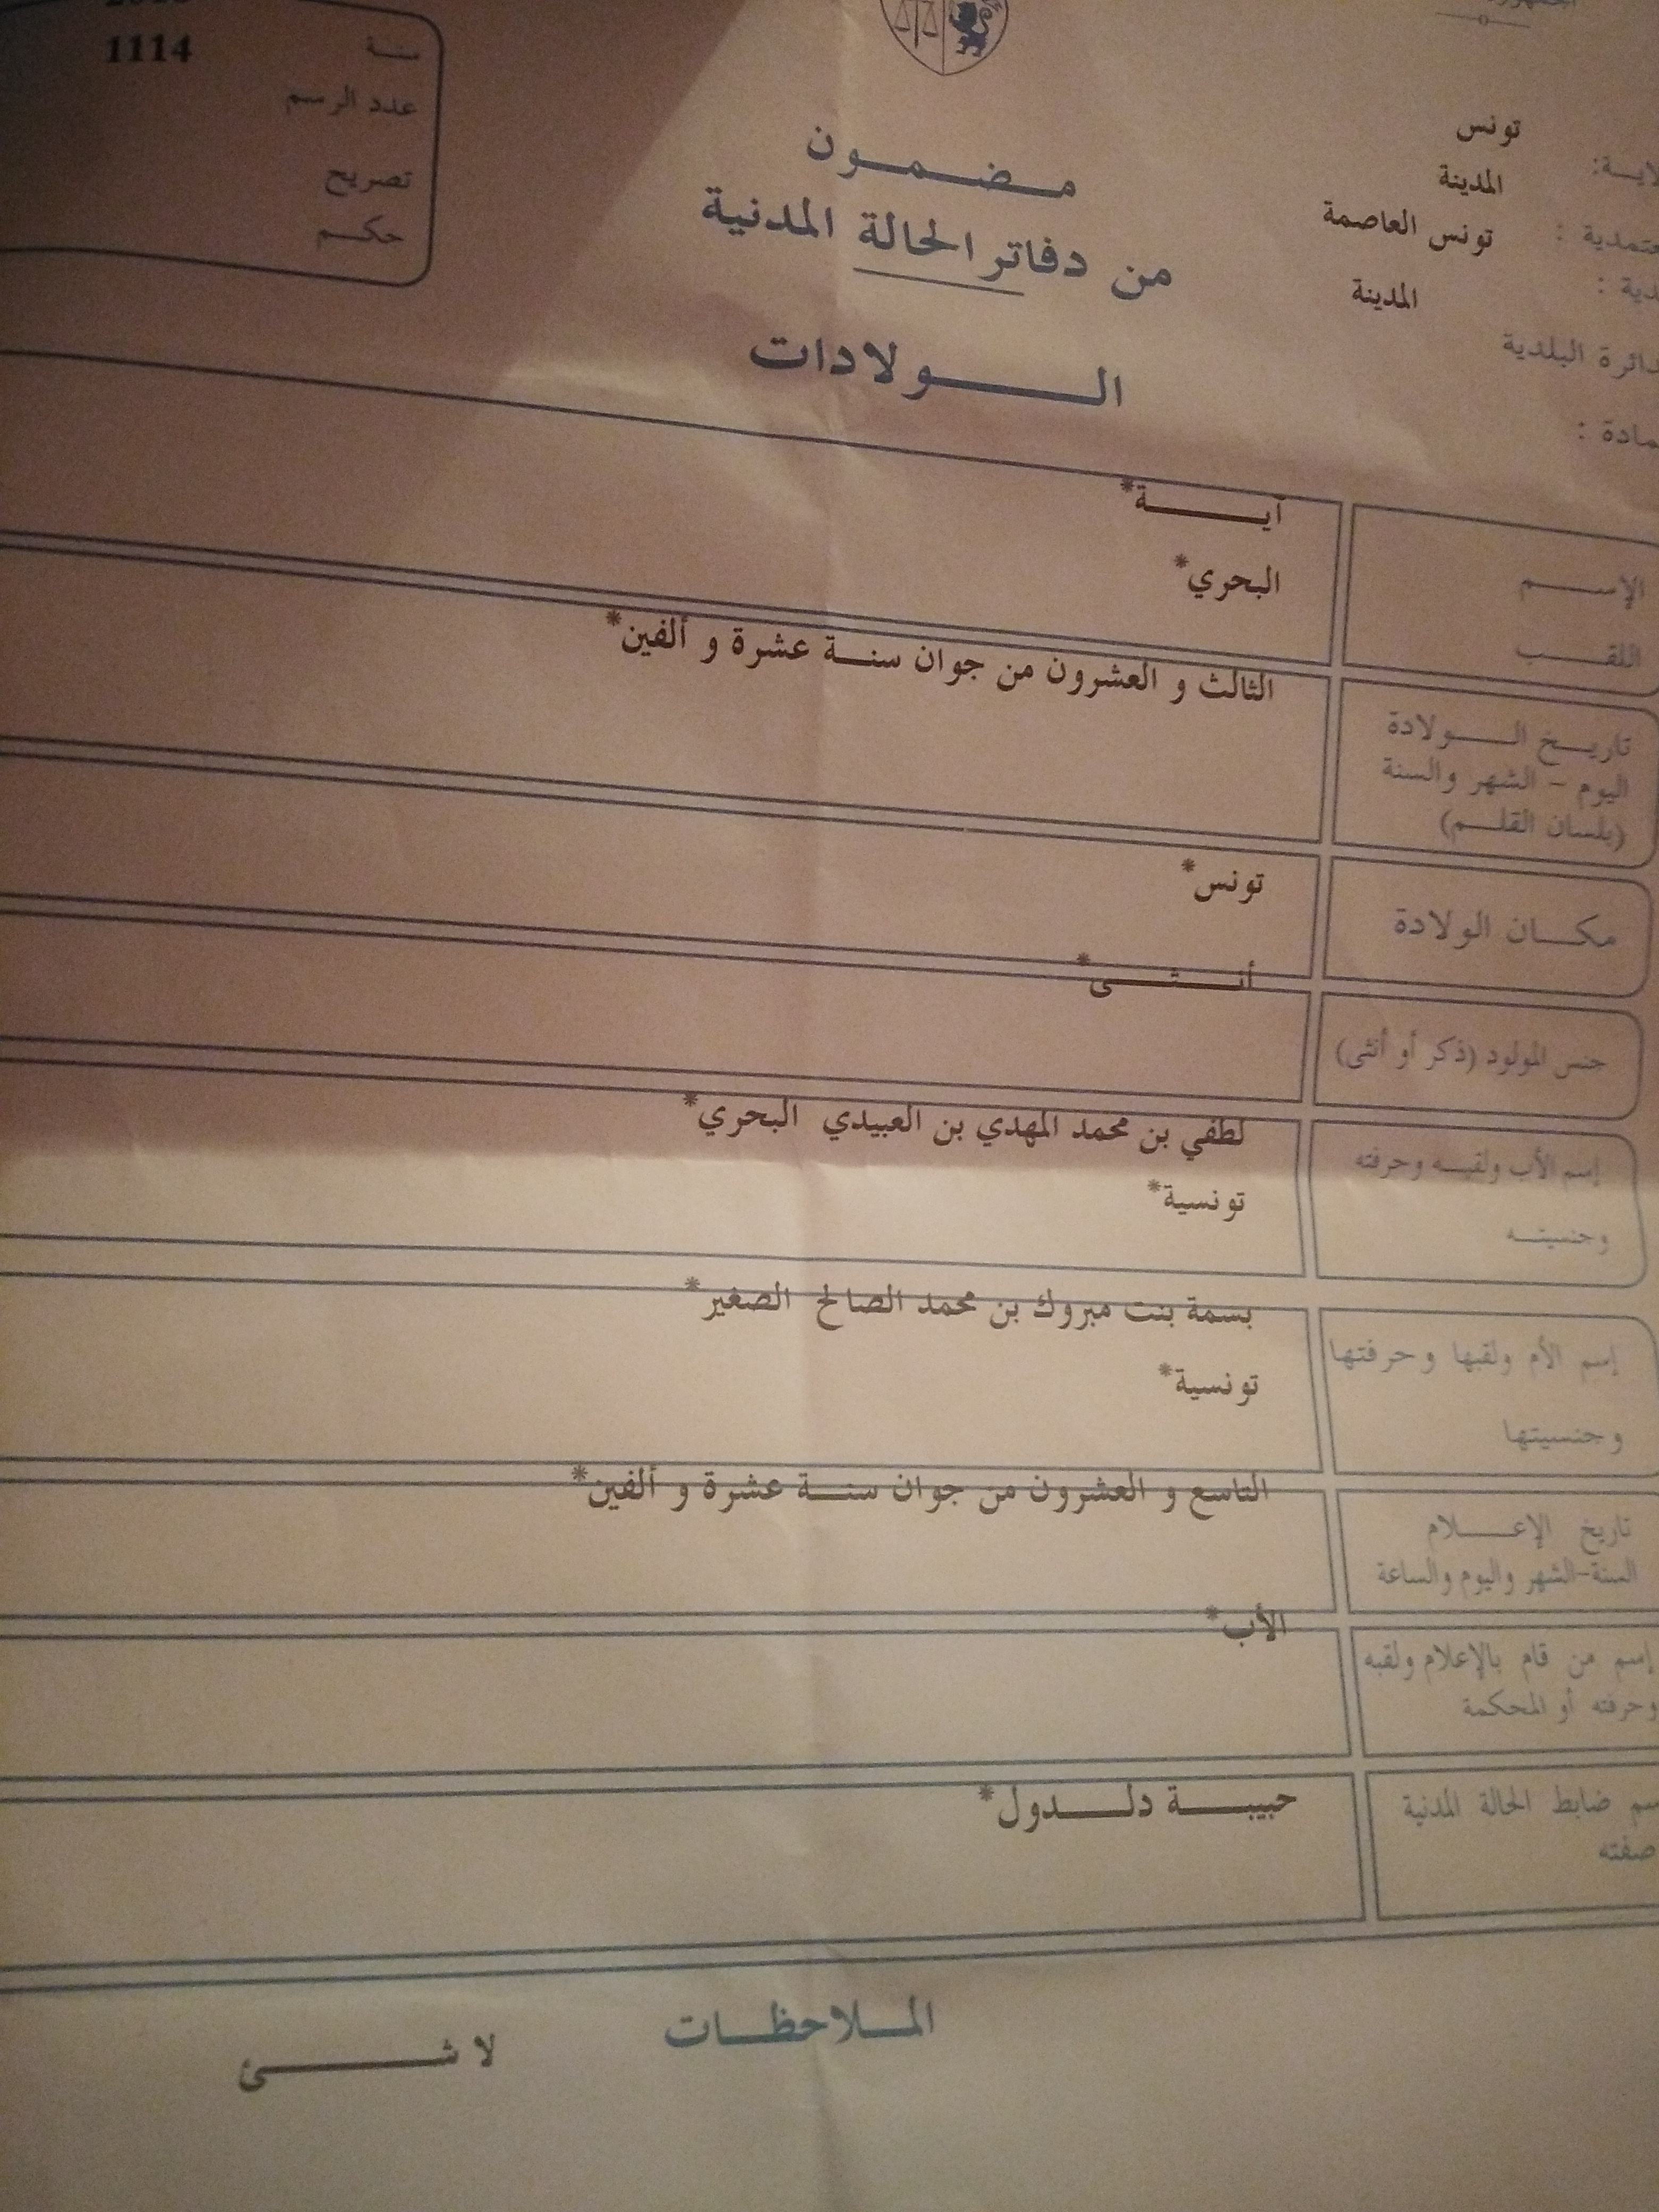 تونس
المدينة
تونس العاصمة
المدينة
الدائرة البلدية
مضمون
من دفاتر الحالة المدنية
الولادات
سنة
1114
عدد الرسم
تصريح
حكم
الإسم
آية*
اللقب
البحري*
تاريخ الولادة
اليوم - الشهر والسنة
(بلسان القلم)
الثالث و العشرون من جوان سنة عشرة و ألفين*
مكان الولادة
تونس*
جنس المولود (ذكر أو أنثى)
أنثى*
إسم الأب ولقبه وحرفته
وجنسيته
لطفي بن محمد المهدي بن العبيدي البحري*
تونسية*
إسم الأم ولقبها وحرفتها
وجنسيتها
بسمة بنت مبروك بن محمد الصالح الصغير*
تونسية*
تاريخ الإعلام
السنة-الشهر واليوم والساعة
التاسع و العشرون من جوان سنة عشرة و ألفين*
إسم من قام بالإعلام ولقبه
وحرفته أو المحكمة
الأب*
ضابط الحالة المدنية
صفته
حبيبة دلدول*
الملاحظات
لا شئ